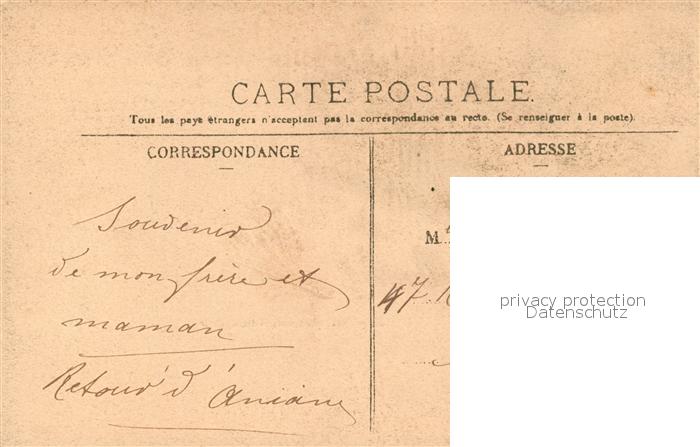 CARTE POSTALE.
Tous les pays étrangers n'acceptent pas la correspondance au recto. (Se renseigner à la poste).
CORRESPONDANCE
ADRESSE
Souvenir
de mon frère et
maman
Retour d'Aniane
M
47
privacy protection
Datenschutz